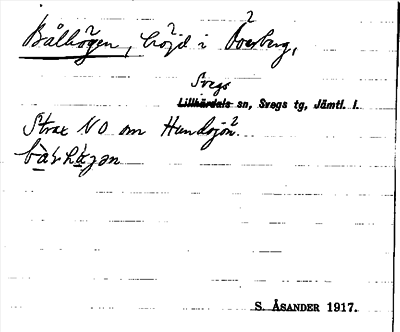 Bålhögen, höjd i Överberg,
Svegs
Lillhärdals sn, Svegs tg, Jämtl. l.
Strax NO om Hundsjön.
S. ÅSANDER 1917.